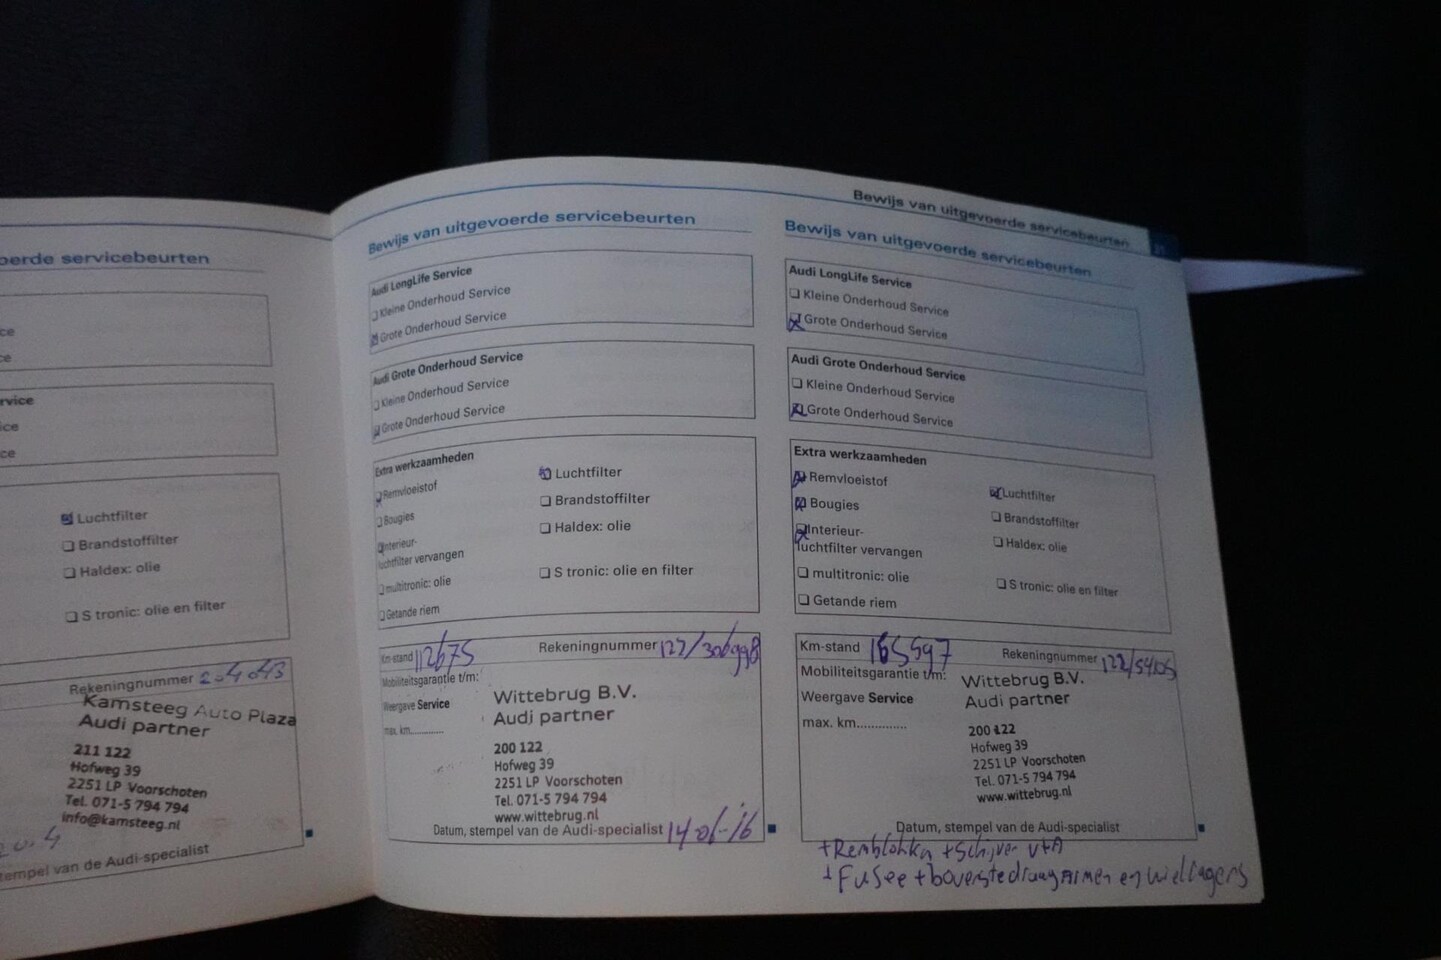 Bewijs van uitgevoerde servicebeurten
oerde servicebeurten
ce
ce
rvice
ce
ce
Luchtfilter
Brandstoffilter
Haldex: olie
S tronic: olie en filter
Rekeningnummer 204043
Kamsteeg Auto Plaza
Audi partner
211 122
Hofweg 39
2251 LP Voorschoten
Tel. 071-5 794 794
info@kamsteeg.nl
stempel van de Audi-specialist
Bewijs van uitgevoerde servicebeurten
Audi LongLife Service
Kleine Onderhoud Service
Grote Onderhoud Service
Audi Grote Onderhoud Service
Kleine Onderhoud Service
Grote Onderhoud Service
Extra werkzaamheden
Remvloeistof
Bougies
Interieur-
luchtfilter vervangen
multitronic: olie
Getande riem
Luchtfilter
Brandstoffilter
Haldex: olie
S tronic: olie en filter
Km-stand 112675
Rekeningnummer 122/306998
Mobiliteitsgarantie t/m:
Weergave Service
max. km.............
Wittebrug B.V.
Audi partner
200 122
Hofweg 39
2251 LP Voorschoten
Tel. 071-5 794 794
www.wittebrug.nl
Datum, stempel van de Audi-specialist 14-01-16
Bewijs van uitgevoerde servicebeurten
Audi LongLife Service
Kleine Onderhoud Service
Grote Onderhoud Service
Audi Grote Onderhoud Service
Kleine Onderhoud Service
Grote Onderhoud Service
Extra werkzaamheden
Remvloeistof
Bougies
Interieur-
luchtfilter vervangen
multitronic: olie
Getande riem
Luchtfilter
Brandstoffilter
Haldex: olie
S tronic: olie en filter
Km-stand 165597
Rekeningnummer 122/
Mobiliteitsgarantie t/m:
Weergave Service
max. km..............
Wittebrug B.V.
Audi partner
200 122
Hofweg 39
2251 LP Voorschoten
Tel. 071-5 794 794
www.wittebrug.nl
Datum, stempel van de Audi-specialist
+Remblokken +Schijven v+A
+Fusee +bovenste draagarmen en wiellagers